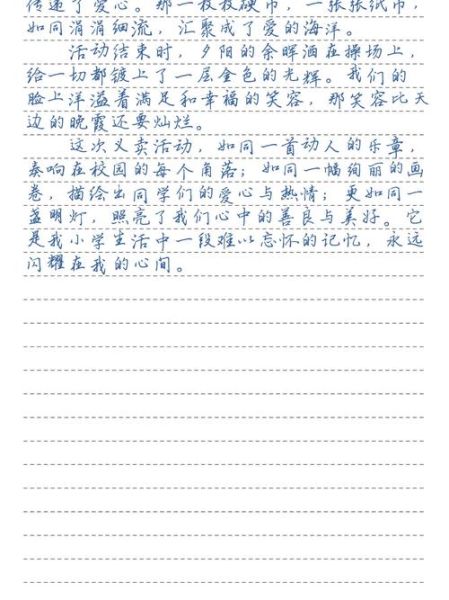 传递了爱心。那一枚枚硬币，一张张纸币，
如同涓涓细流，汇聚成了爱的海洋。
活动结束时，夕阳的余晖洒在操场上，
给一切都镀上了一层金色的光辉。我们的
脸上洋溢着满足和幸福的笑容，那笑容比天
边的晚霞还要灿烂。
这次义卖活动，如同一首动人的乐章，
奏响在校园的每个角落；如同一幅绚丽的画
卷，描绘出同学们的爱心与热情；更如同一
盏明灯，照亮了我们心中的善良与美好。它
是我小学生活中一段难以忘怀的记忆，永远
闪耀在我的心间。